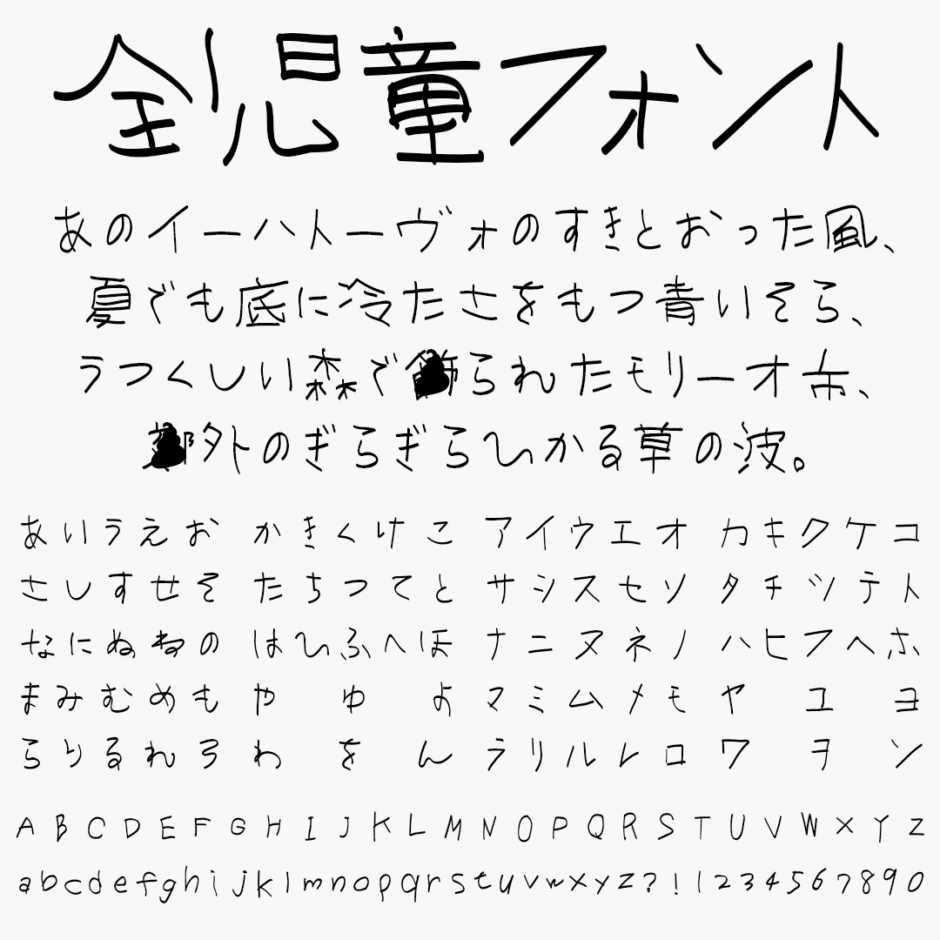 全児童フォント
あのイーハトーヴォのすきとおった風、
夏でも底に冷たさをもつ青いそら、
うつくしい森で飾られたモリーオ市、
郊外のぎらぎらひかる草の波。
あいうえお かきくけこ アイウエオ カキクケコ
さしすせそ たちつてと サシスセソ タチツテト
なにぬねの はひふへほ ナニヌネノ ハヒフヘホ
まみむめも や ゆ よ マミムメモ ヤ ユ ヨ
らりるれろ わ を ん ラリルレロ ワ ヲ ン
ABCDEFGHIJKLMNOPQRSTUVWXYZ
abcdefghijklmnopqrstuvwxyz?!1234567890